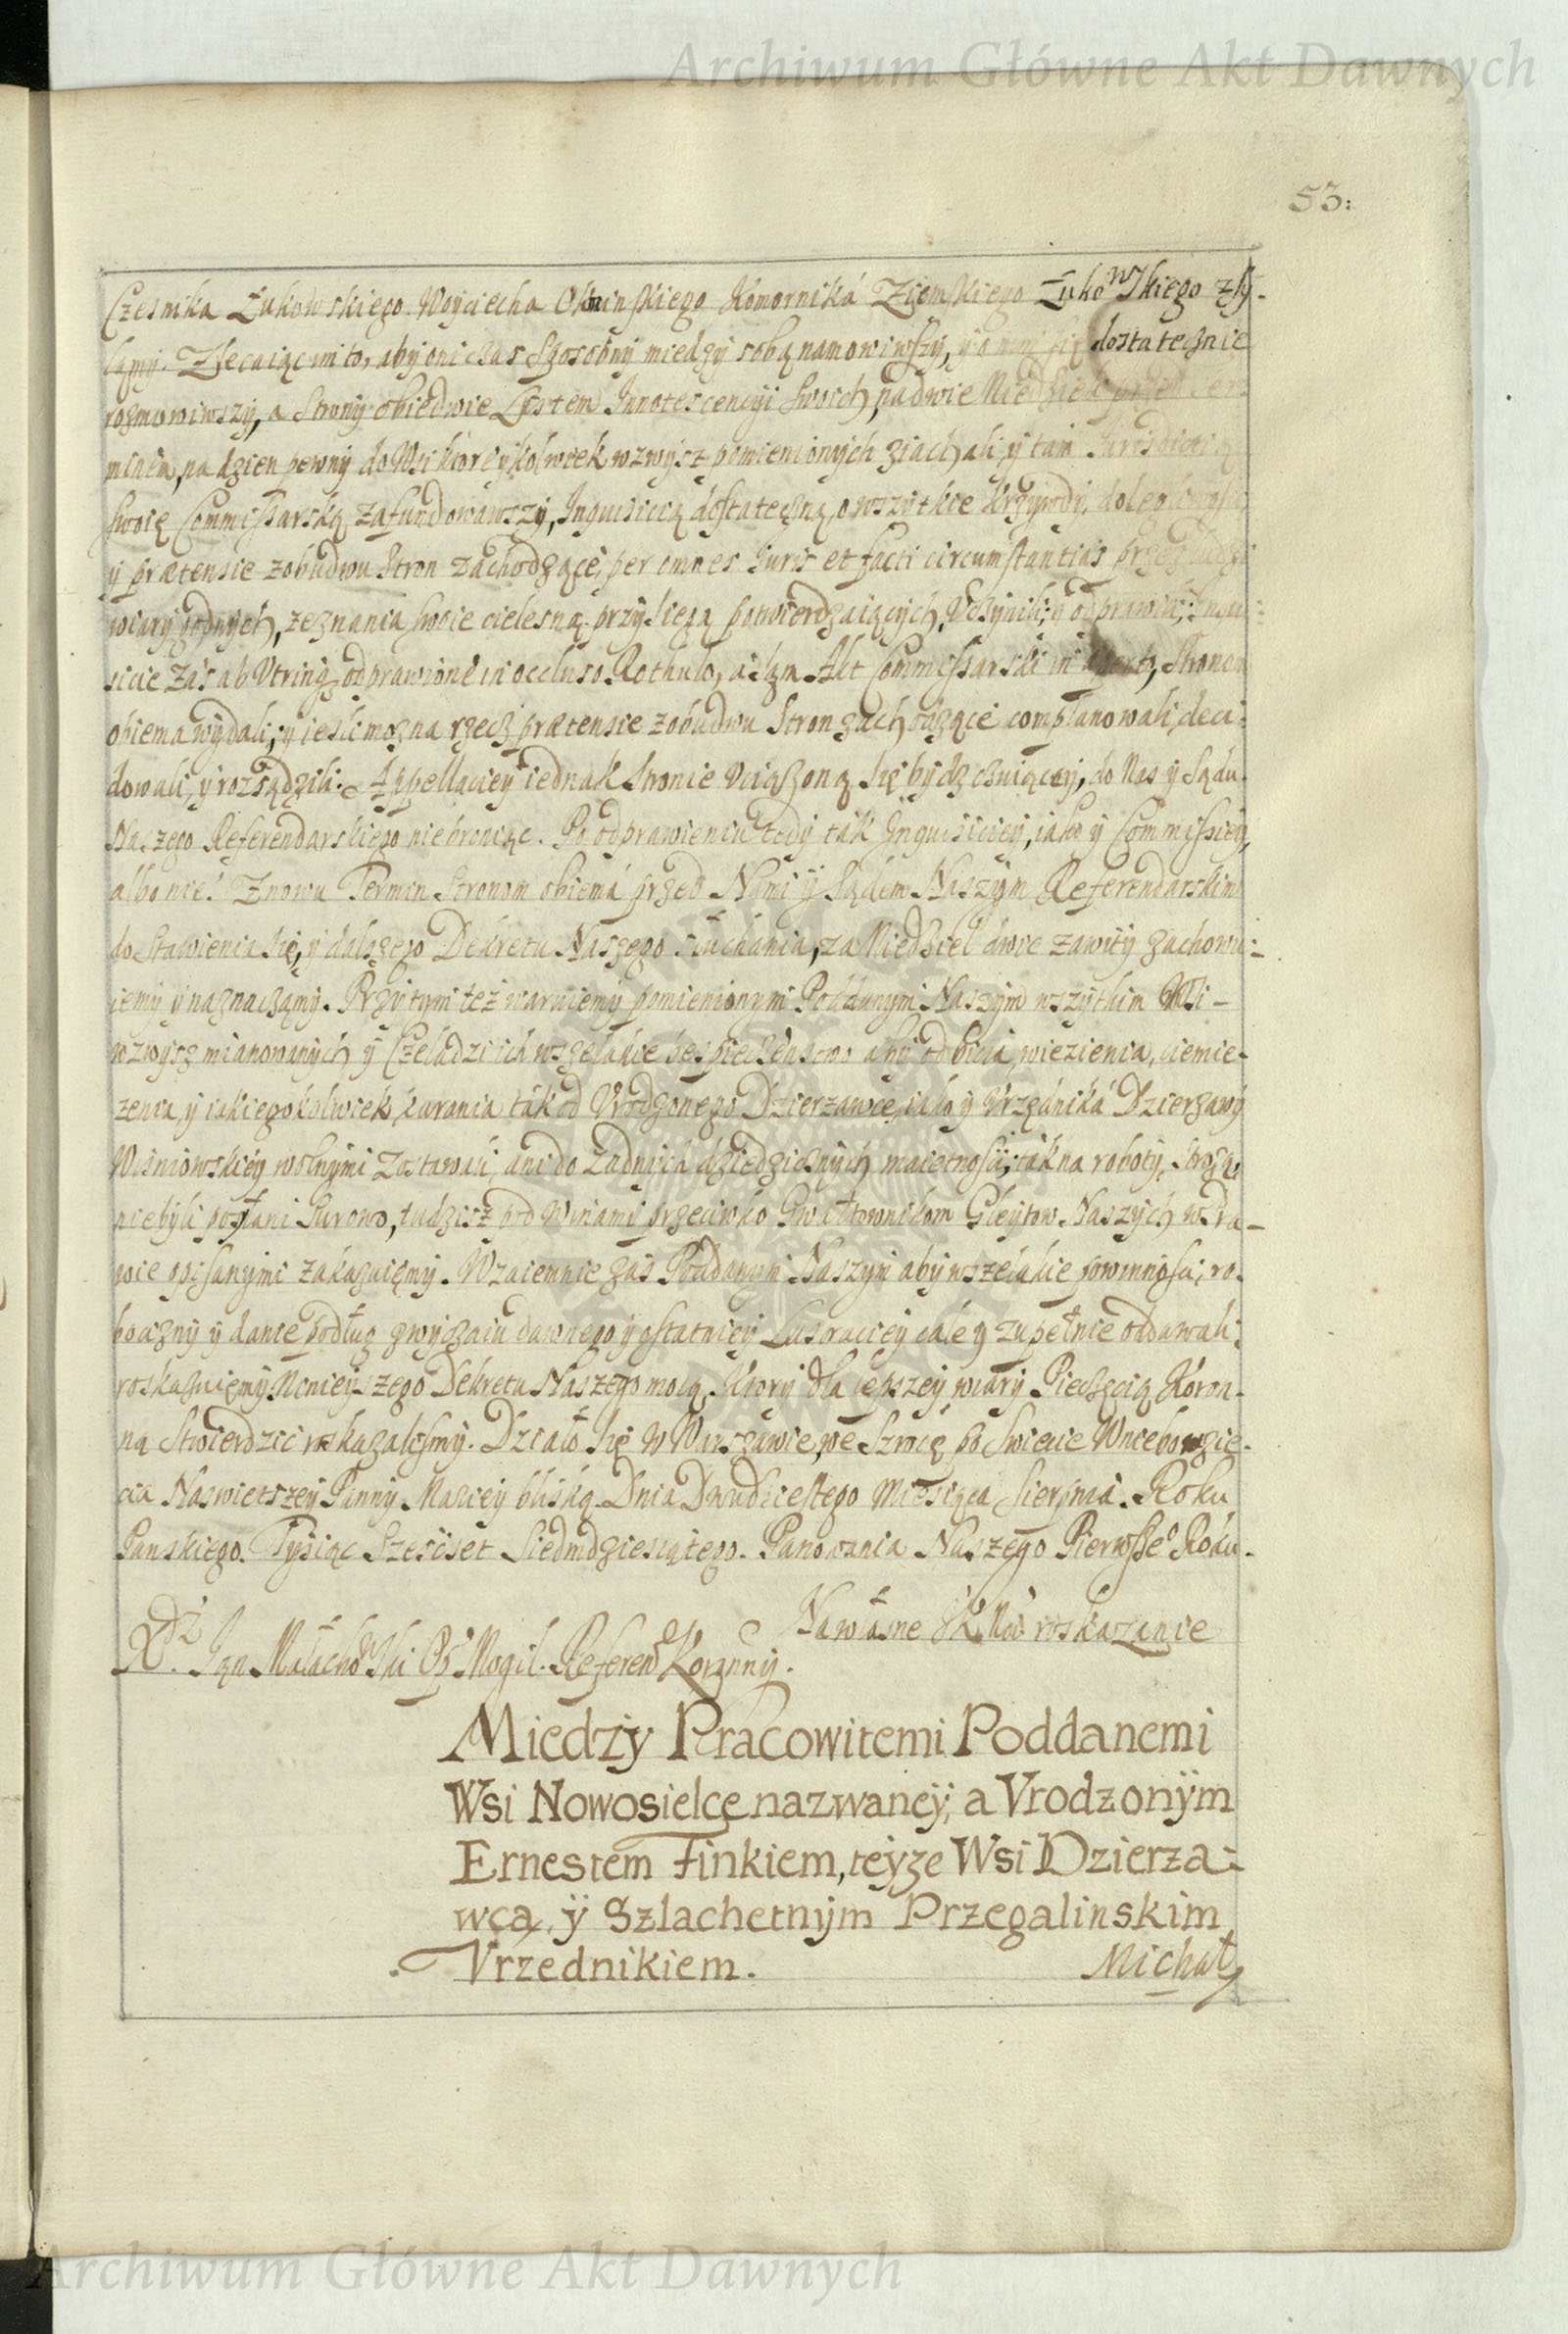 Archiwum Główne Akt Dawnych
53:
Czesnika Łukowskiego. Woyciecha Okninskiego Komorniká Ziemskiego Łukowskiego zsÿ-
łamÿ. Zlecaiąc im to, abÿ oni czas sposobnÿ miedzÿ sobą namowiwszÿ, ÿ o nim się dostatecznie
rozmowiwszÿ, a Stronÿ obiedwie Lÿstem Innotescencÿi swoich, na dwie Niedzieli przed Ter-
minem, na dzien pewnÿ do Wsi ktoreÿkolwiek wzwÿsz pomienionÿch ziachali, ÿ tam Iurisdictią
swoię Commissarską zafundowawszÿ, Inquisicią dostateczną, o wszÿtkie krzÿwdÿ, dolegliwosci
ÿ prætensie z obudwu Stron zachodzące, per omnes Iuris et facti circumstantias przez ludzi
wiarÿ godnÿch, zeznania swoie cielesną przÿsięgą potwierdzaiącÿch, Vczÿnili, ÿ odprawili; Inqui-
sicie zás ab Utrinq odprawione in occluso Rothulo, a sam Akt Commissarski in aperto, Stronom
obiema wÿdali; ÿ iesli mozna rzecz prætensie z obudwu Stron zachodzące complanowali, deci-
dowali, ÿ rozsądzili. Appellacieÿ iednak Stronie Vciązoną się bÿdz czuiąceÿ, do Nas ÿ Sądu
Naszego Referendarskiego nie broniąc. Po odprawieniu tedÿ tak Inquisicieÿ, iako ÿ Commissieÿ,
albo nie! Znowu Termin Stronom obiemá przed Nami ÿ Sądem Naszÿm Referendarskim
do Stawienia się, ÿ dalszego Dekretu Naszego słuchania, za Niedziel dwie zawitÿ zachowu-
iemÿ ÿ naznaczamÿ. Przÿ tÿm też waruiemÿ pomienionÿm Poddanÿm Naszÿm wszÿtkim Wsi-
wzwÿsz mianowanÿch ÿ Czeladzi ich wszelakie bespieczenstwo abÿ od bicia, wiezienia, ciemie-
zenia, ÿ iakiegokolwiek karania ták od Vrodzonego Dzierzawce, iáko ÿ Vrzędniká Dzierzawÿ
Wisniowskieÿ wolnÿmi zostawali, ani do żadnÿch dziedzicznÿch maietnosci, ták na robotÿ, strożą,
nie bÿli posłani surowo, tudzisz pod Winami przeciwko Gwałtownikom Gleÿtow Naszÿch w Pra-
wie opisanÿmi zakazuięmÿ. Wzaiemnie zas Poddanÿm Naszÿm abÿ wszelákie powinnosci, ro-
bociznÿ ÿ danie podług zwÿczaiu dawnego ÿ ostatnieÿ Lustracieÿ całe ÿ zupełnie oddawali,
roskazuięmÿ Ninieÿszego Dekretu Naszego mocą. Ktorÿ dla lepszeÿ wiarÿ Pieczęcią Koron-
ną Stwierdzic roskazalismÿ. Działo się w Warszawie, we Szrodę po Swiecie Wniebowzie-
cia Naswietszeÿ Pannÿ Marieÿ bliską. Dnia Dwudziestego Miesiąca Sierpnia. Roku
Panskiego. Tÿsiąc Szescset Siedmdziesiątego. Panowania Naszego Pierwsse͠o Roku.
Na własne JKMci roskazanie
Xdz Jan Małachowski Op Mogil. Referend Koronnÿ.
Miedzÿ Pracowitemi Poddanemi
Wsi Nowosielce nazwaneÿ; a Vrodzonÿm
Ernestem Finkiem, teÿze Wsi Dzierza-
wcą, ÿ Szlachetnÿm Przegalinskim
Vrzednikiem. Michał
Archiwum Główne Akt Dawnych